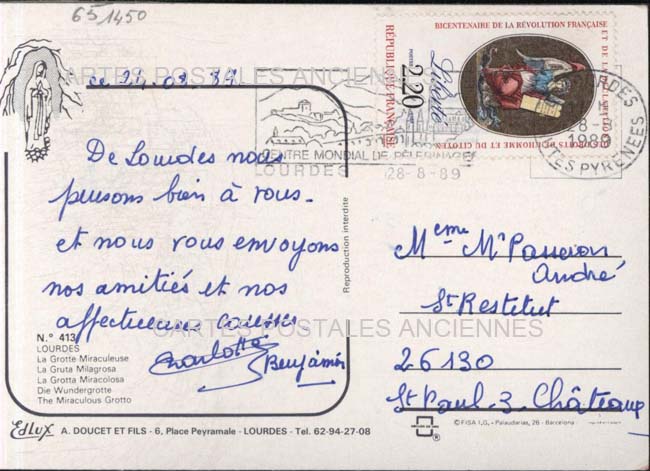 65 1450
CARTES POSTALES ANCIENNES
De Lourdes nous
pensons bien à vous.
et nous vous envoyons
nos amitiés et nos
affectueuses
Charlotte
Benjamin
N.° 413
LOURDES
La Grotte Miraculeuse
La Gruta Milagrosa
La Grotta Miracolosa
Die Wundergrotte
The Miraculous Grotto
Edlux A. DOUCET ET FILS - 6, Place Peyramale - LOURDES - Tel. 62-94-27-08
Reproduction interdite
BICENTENAIRE DE LA RÉVOLUTION FRANÇAISE
ET DE LA DÉCLARATION DES DROITS DE L'HOMME ET DU CITOYEN
RÉPUBLIQUE FRANÇAISE
POSTES
2,20
Liberté
CENTRE MONDIAL DE PÈLERINAGE
LOURDES
28-8-89
LOURDES
28-8
1989
HTES PYRENEES
Mme Mr
André
St Restitut
26130
St Paul 3 Châteaux
CARTES POSTALES ANCIENNES
© FISA I.G. - Palaudarias, 26 - Barcelona